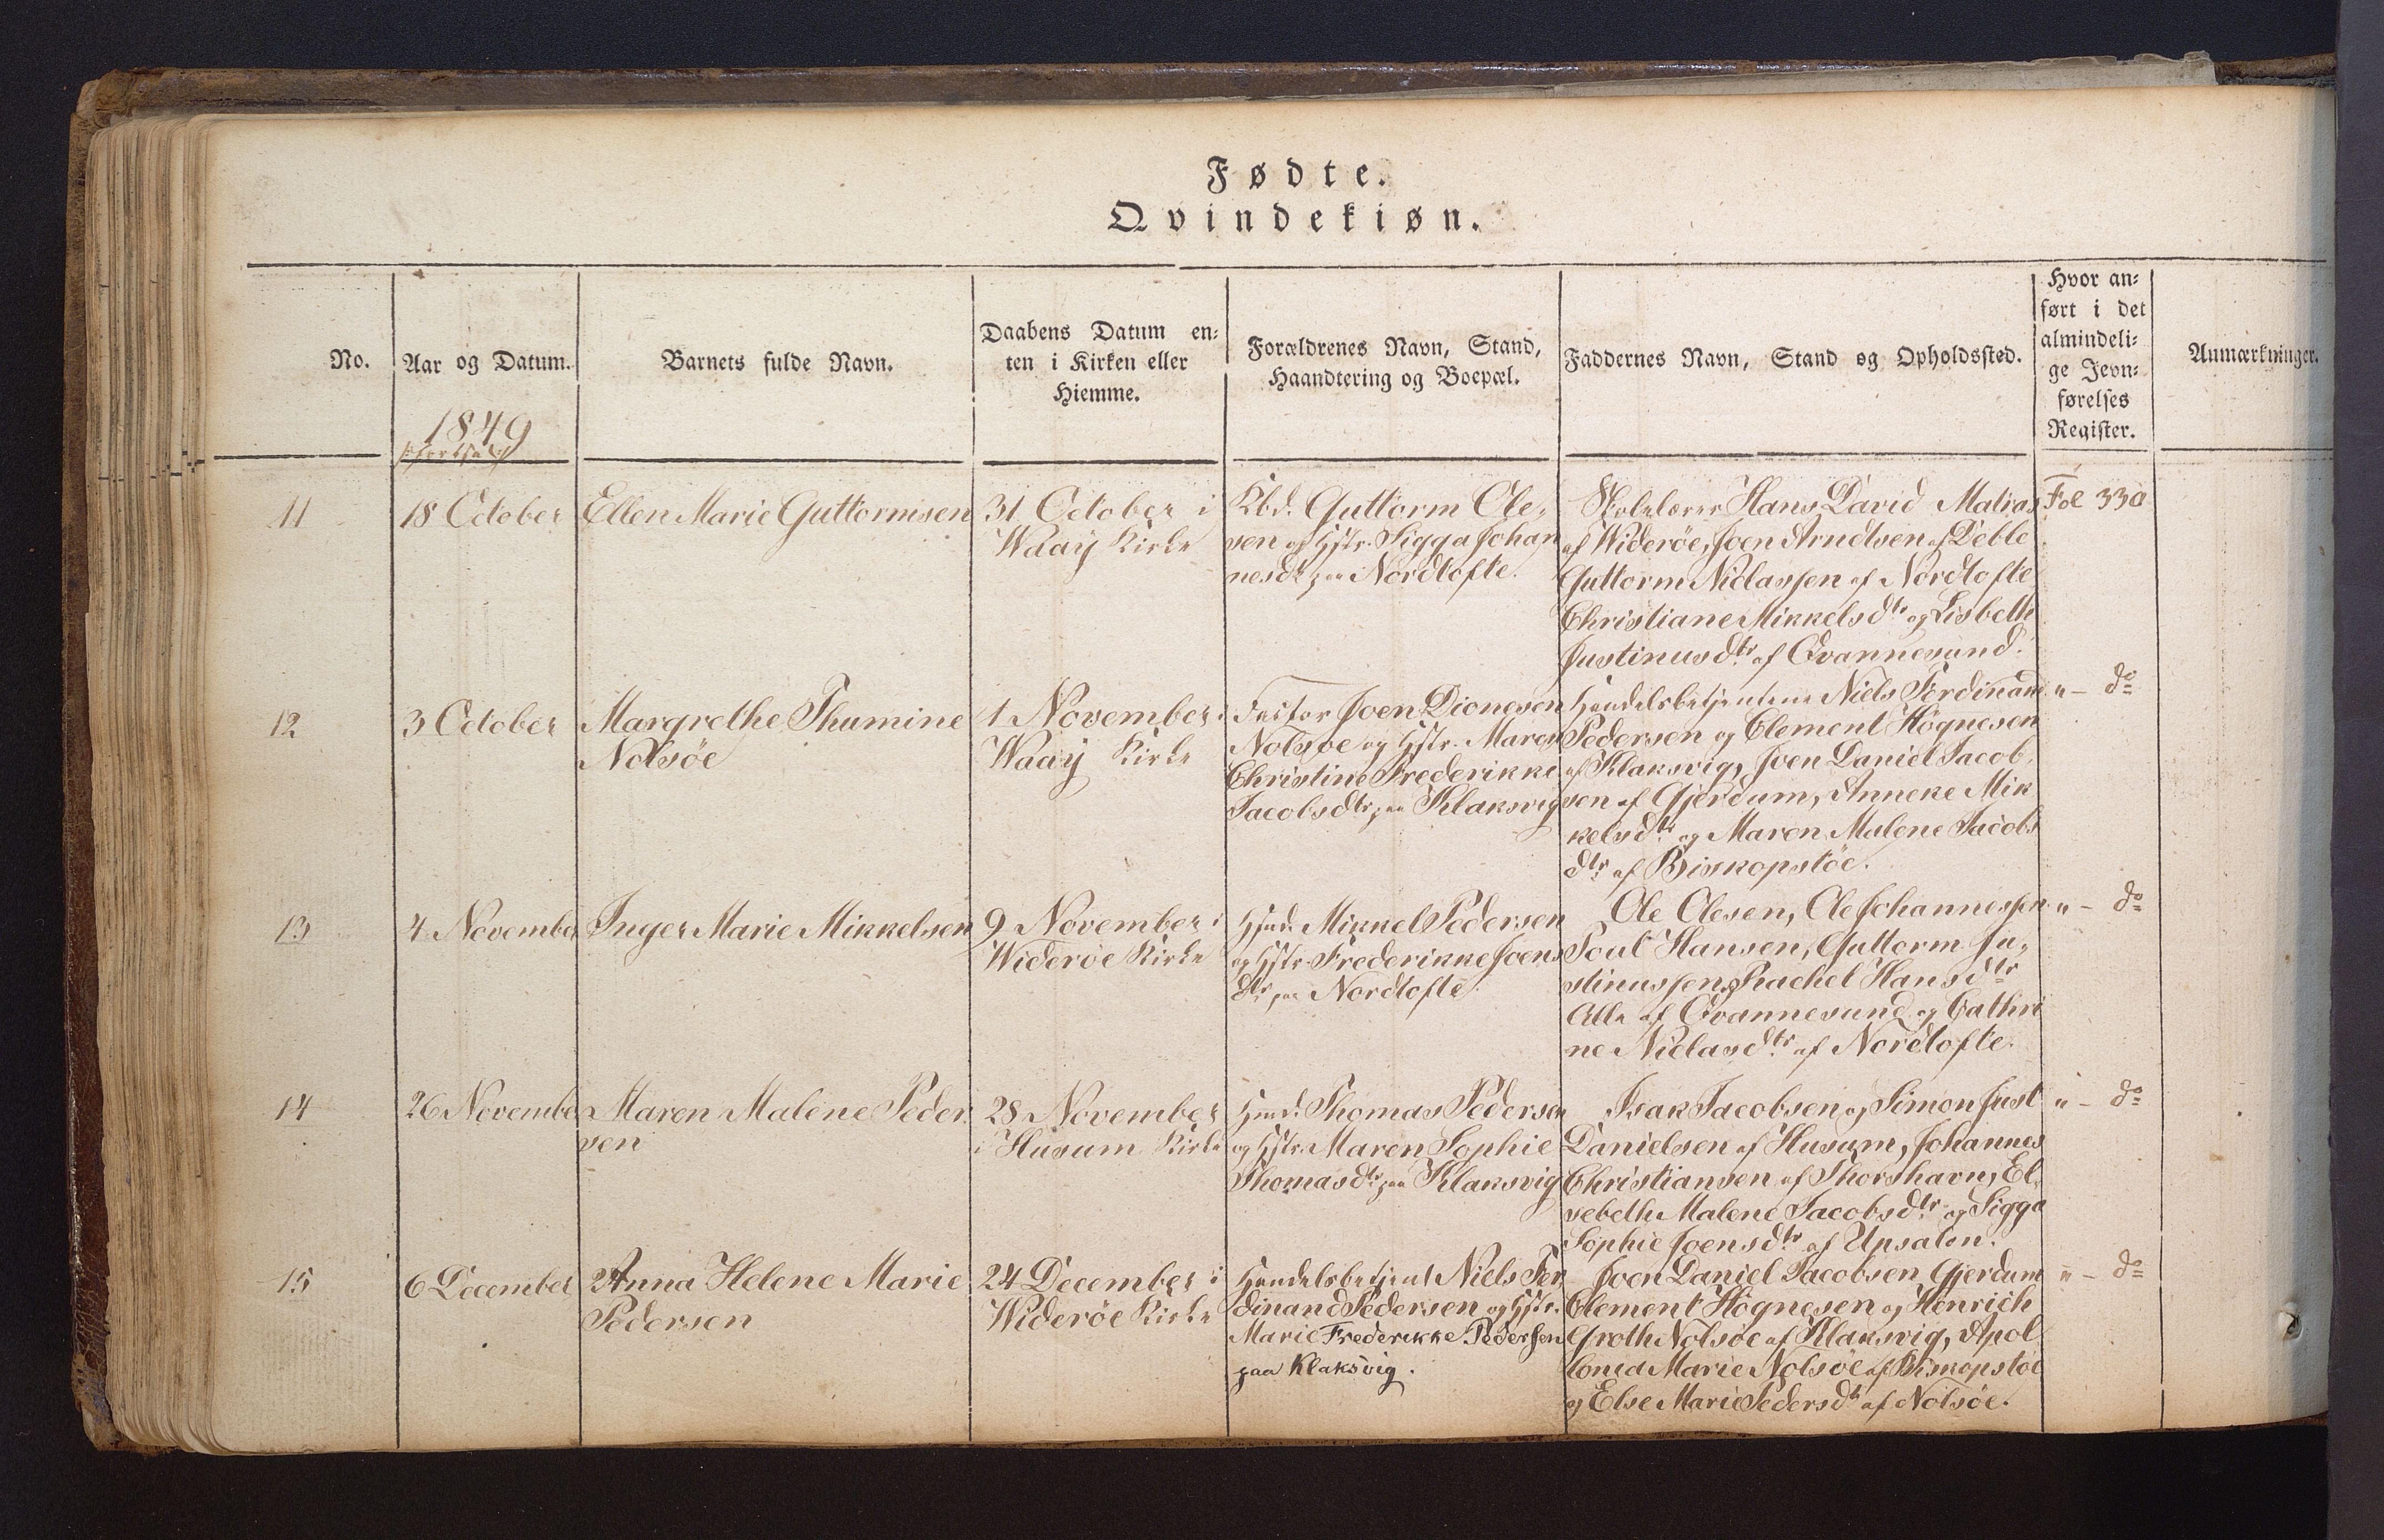 Fødte.
Qvindekiøn.
No.
Aar og Datum.
1849
Barnets fulde Navn.
Daabens Datum en-
ten i Kirken eller
Hiemme.
Forældrenes Navn, Stand,
Haandtering og Boepæl.
Faddernes Navn, Stand og Opholdssted.
Hvor an-
ført i det
almindeli-
ge Jevn-
førelses
Register.
Anmærkninger.
11
18 October
Ellen Marie Guttormsen
31 October i
Waay Kirke
Kbd. Guttorm Ole-
sen og Hstr. Sigga Johan
nesdtr paa Nordtofte.
Skolelærer Hans David Matras
af Widerøe, Joen Arndtsen af Deble
Guttorm Niclassen af Nordtofte
Christiane Mikkelsdtr og Lisbeth
Justinusdtr af Qvannesund.
Fol 330
12
3 October
Margrethe Thumine
Nolsøe
1 November i
Waay Kirke
Factor Joen Dionesen
Nolsøe og Hstr. Maren
Christine Frederikke
Jacobsdtr paa Klaksvig
Handelsbetjentene Niels Ferdinand
Pedersen og Clement Høgnesen
af Klaksvig, Joen Daniel Jacob-
sen af Gjerdum, Anneke Mik
kelsdtr og Maren Malene Jacobs
dtr af Biskopstøe.
" - do
13
4 November
Inger Marie Mikkelsen
9 November i
Widerøe Kirke
Hmd. Mikkel Pedersen
og Hstr. Frederikke Joens
dtr paa Nordtofte.
Ole Olesen, Ole Johannessen
Poul Hansen, Guttorm Ju-
stinussen, Rachel Hansdtr
Alle af Qvannesund og Cathri
ne Niclasdtr af Nordtofte.
" - do
14
26 November
Maren Malene Peder
sen
28 November
i Husum Kirke
Hmd. Thomas Pedersen
og Hstr. Maren Sophie
Thomasdtr paa Klaksvig
Isak Jacobsen og Simon Just
Danielsen af Husum, Johannes
Christiansen af Thorshavn, El-
sebeth Malene Jacobsdtr og Sigga
Sophie Joensdtr af Upsalen.
" - do
15
6 December
Anna Helene Marie
Pedersen
24 December i
Widerøe Kirke
Handelsbetjent Niels Fer
dinand Pedersen og Hstr.
Marie Frederikke Pedersen
paa Klaksvig.
Joen Daniel Jacobsen Gjerdum
Clement Høgnesen og Henrich
Groth Nolsøe af Klaksvig, Apol
lonia Marie Nolsøe af Biskopstøe
og Else Marie Pedersdtr af Nolsøe.
" - do